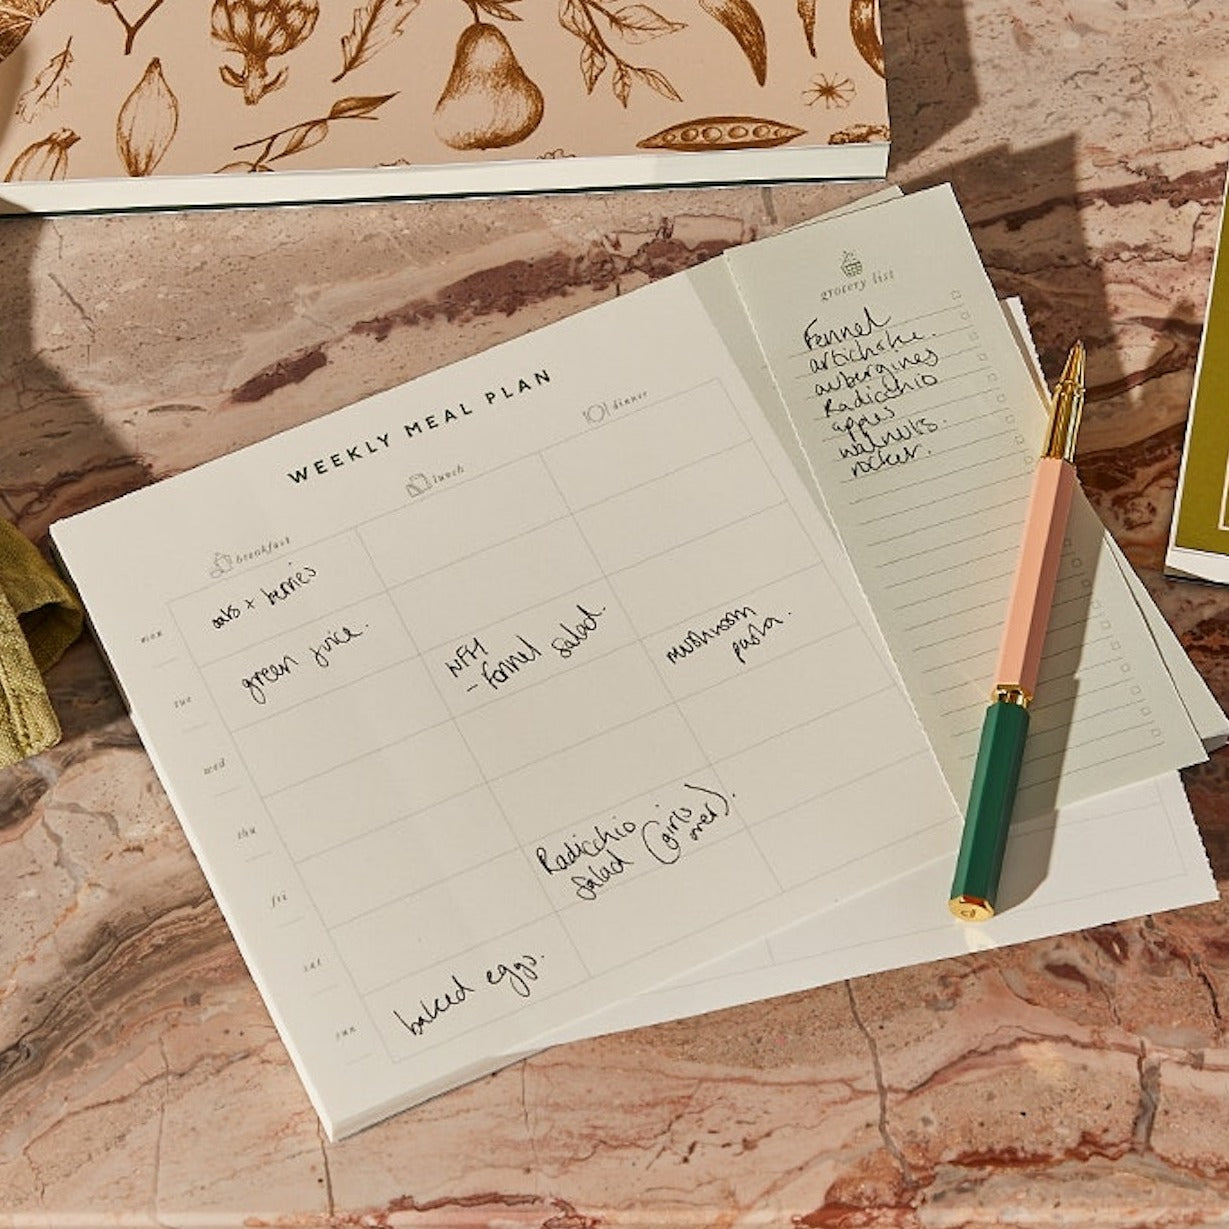 WEEKLY MEAL PLAN
breakfast
lunch
dinner
mon
oats + berries
tue
green juice.
WFH
- Fennel salad.
mushroom
pasta.
wed
thu
fri
sat
Radicchio
salad (girls
over).
sun
baked eggs.
grocery list
Fennel
artichoke.
aubergines
Radicchio
apples
walnuts.
rocket.